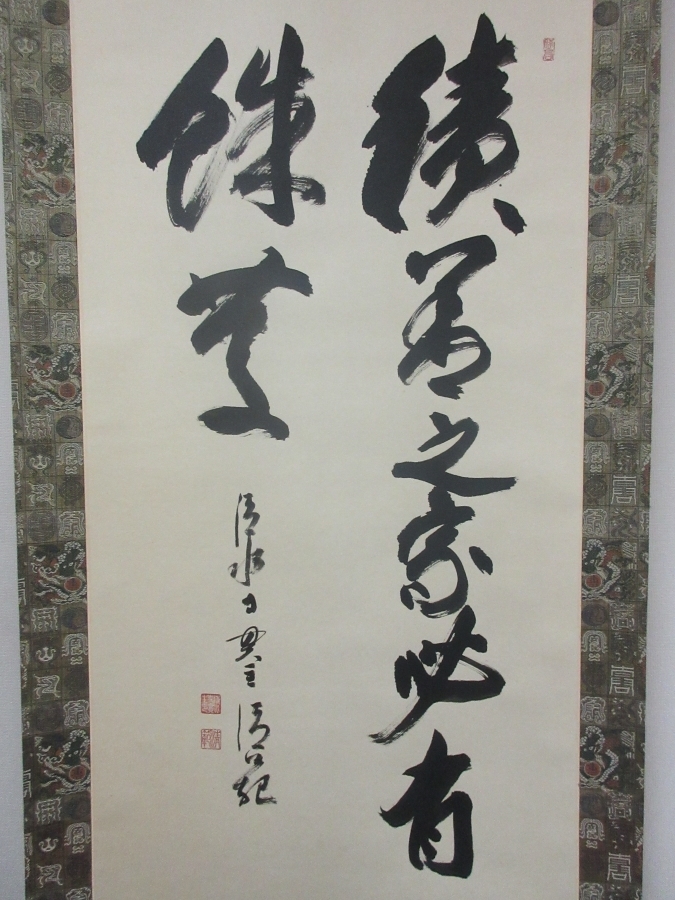 積善之家必有
餘慶
清水寺貫主 清範